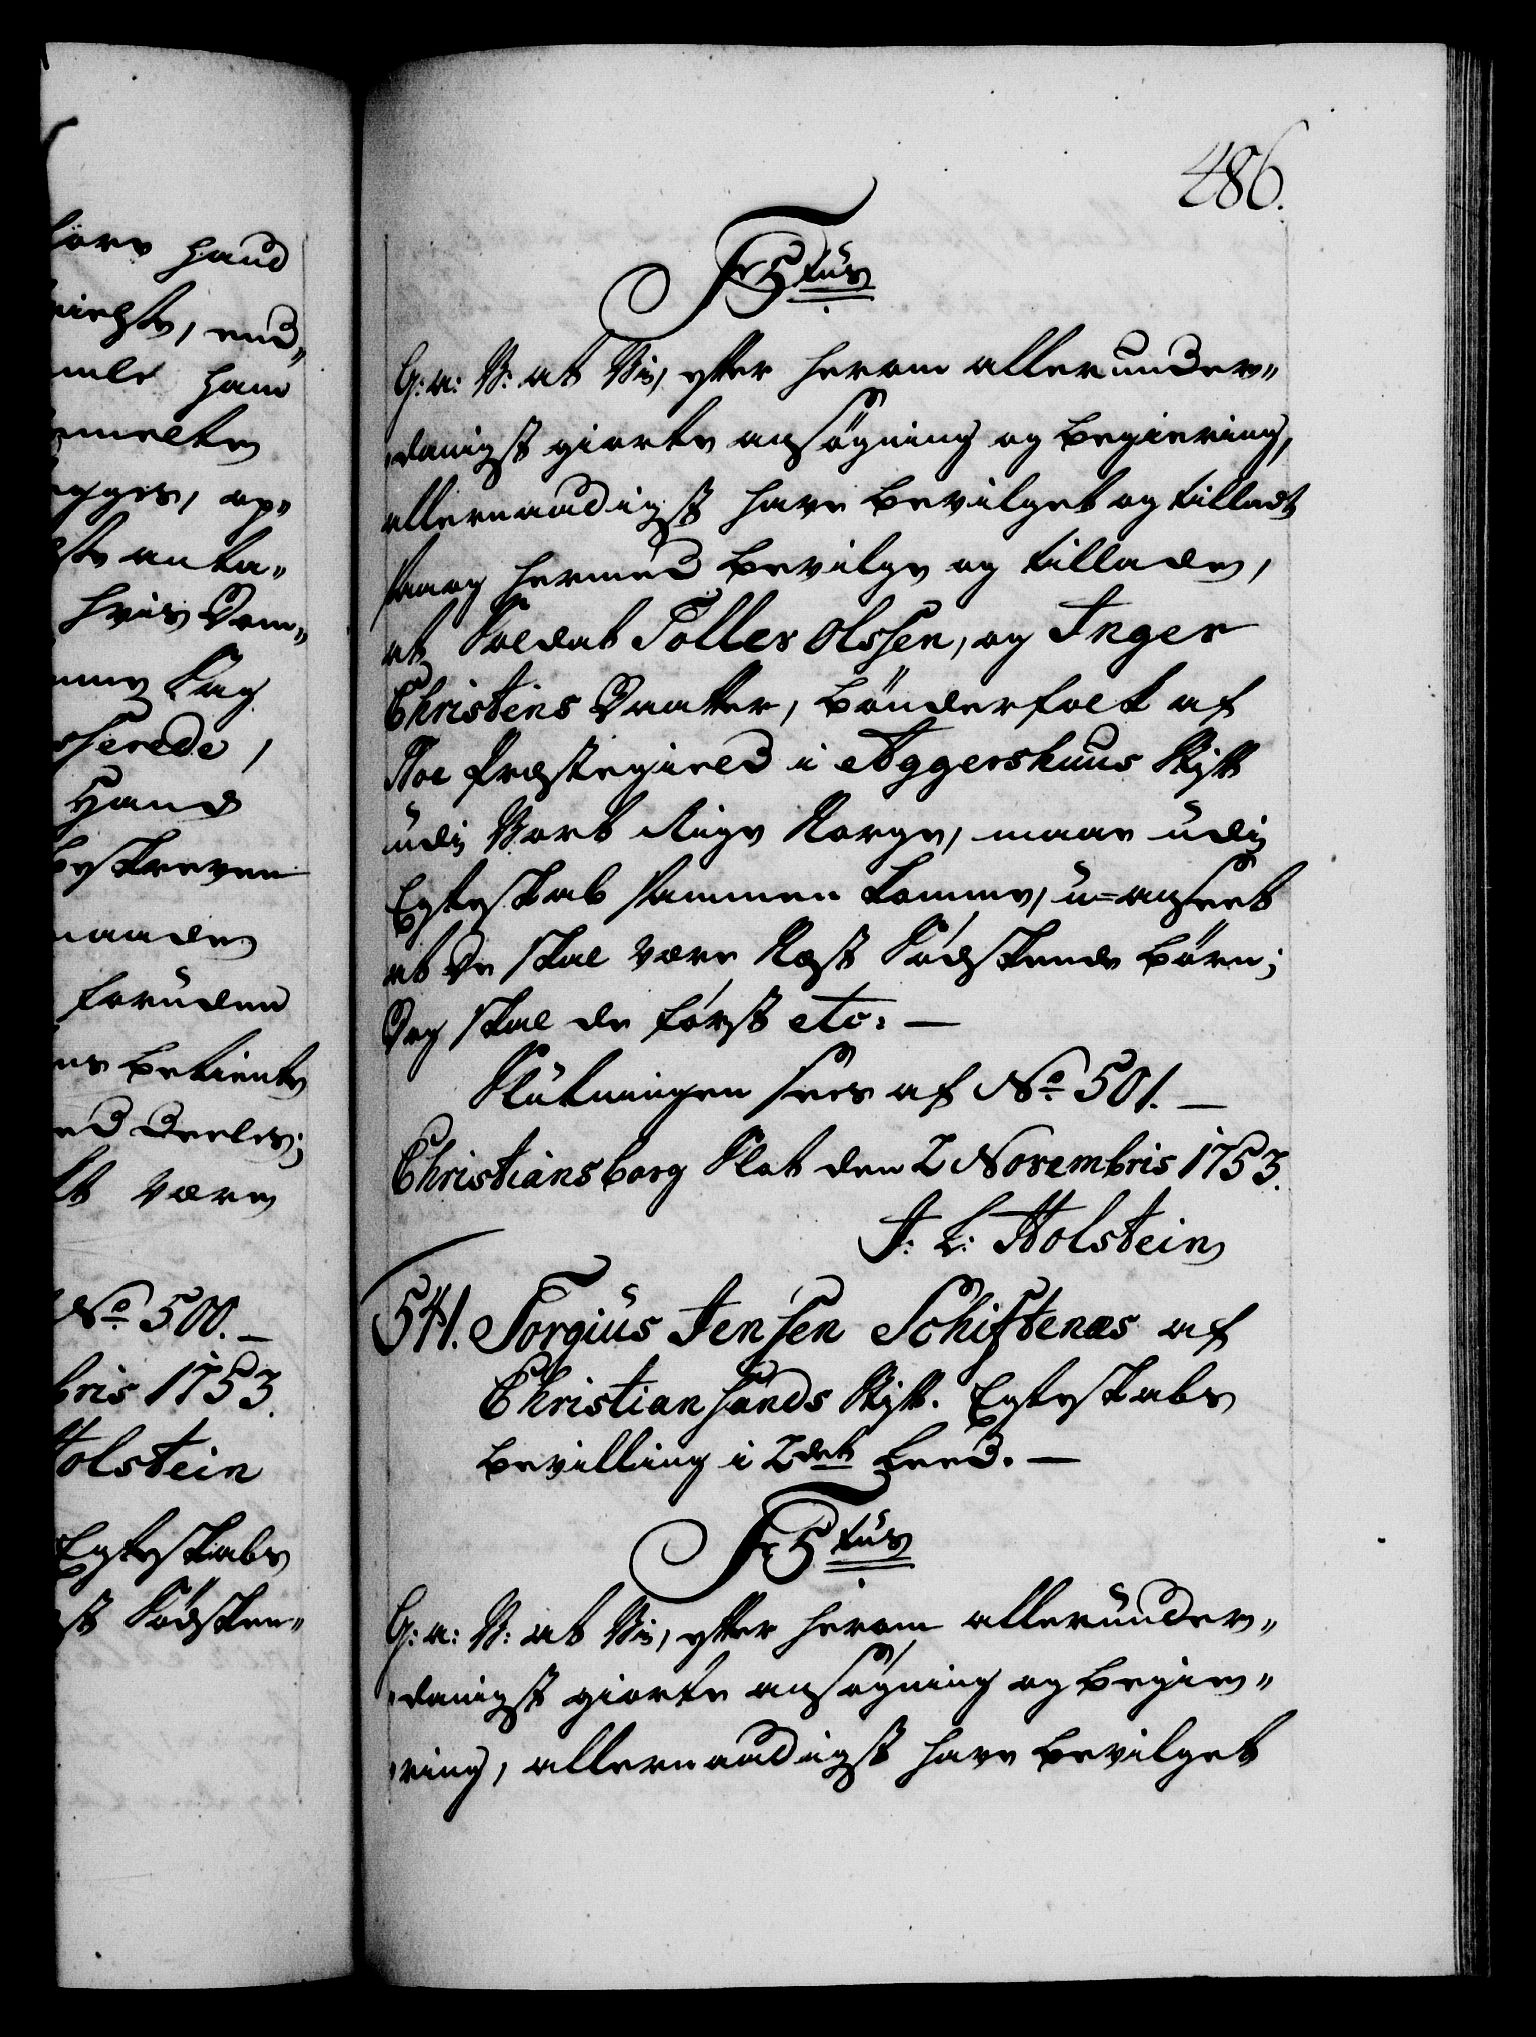 486.
Fr 5tus
G: a: V: at Vi, efter herom allerunder-
danigst giorte ansøgning og begiering,
allernaadigst have bevilget og tilladt
saa og hermed bevilge og tillade,
at Soldat Tolles Olssen, og Inger
Christens Daatter, bønderfolk af
Noe Præstegield i Aggershuus Stift
udi Vort Rige Norge, maae udi
Egteskab sammen komme, u-anseet
at De skal være Næst Sødskende børn;
Dog skal de først etc: —
Slutningen sees af No 501. —
Christiansborg Slot den 2 Novembris 1753.
J: L: Holstein
541. Torgius Jensen Schiftenæs af
Christiansands Stift. Egteskabs
bevilling i 2det Leed. —
Fr 5tus
G: a: V: at Vi, efter herom allerunder-
danigst giorte ansøgning og begie-
ring, allernaadigst have bevilget
haud
end-
ham
op-
anta-
hvis Dom-
Sag
Haand
beskreven
foruden
betiente
være
No 500. —
bris 1753.
Holstein
Egteskabs
Sødsken-